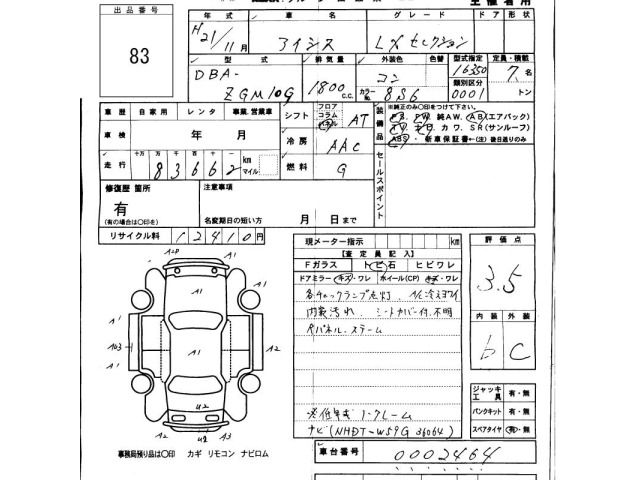 出品番号
83
年式 車名 グレード ドア 形状
H21/11月 アイシス LXセレクション
型式 排気量 外装色 色替 型式指定 定員・積載
DBA-ZGM10G 1800c.c. コン カラーNo. 8S6 16350 7名
類別区分 0001 トン
車歴 自家用 レンタ 事業、営業車
シフト フロア コラム パネル AT
装備品 ※純正のみ〇印をつけて下さい。
PS. PW. 純AW. AB(エアバック)
TV. ナビ. カワ. SR(サンルーフ)
ABS ・新車保証書←(注)後日送りのみ
車検 年 月
冷房 AAC
セールスポイント
走行 十万 万 千 百 十 一 83662 km マイル
燃料 G
修復歴 箇所
有
(有の場合は〇印を)
注意事項
名変期日の短い方 月 日まで
リサイクル料 12410円
現メーター指示 km
評価点
3.5
【査定員記入】
Fガラス トビ石 ヒビワレ
ドアミラー キズ・ワレ ホイール(CP) キズ・ワレ
各チェックランプ点灯. A/C冷えヨワイ
内装汚れ. シートカバー付. 不明
内装 外装
b C
A1
A1
A1
A2
A1
A1
U2
A2
A3
ナビ(NHDT-W59G
ジャッキ 工具 有・無
パンクキット 有・無
スペアタイヤ 有・無
事務局残り品は〇印 カギ リモコン ナビロム
車台番号 0002464